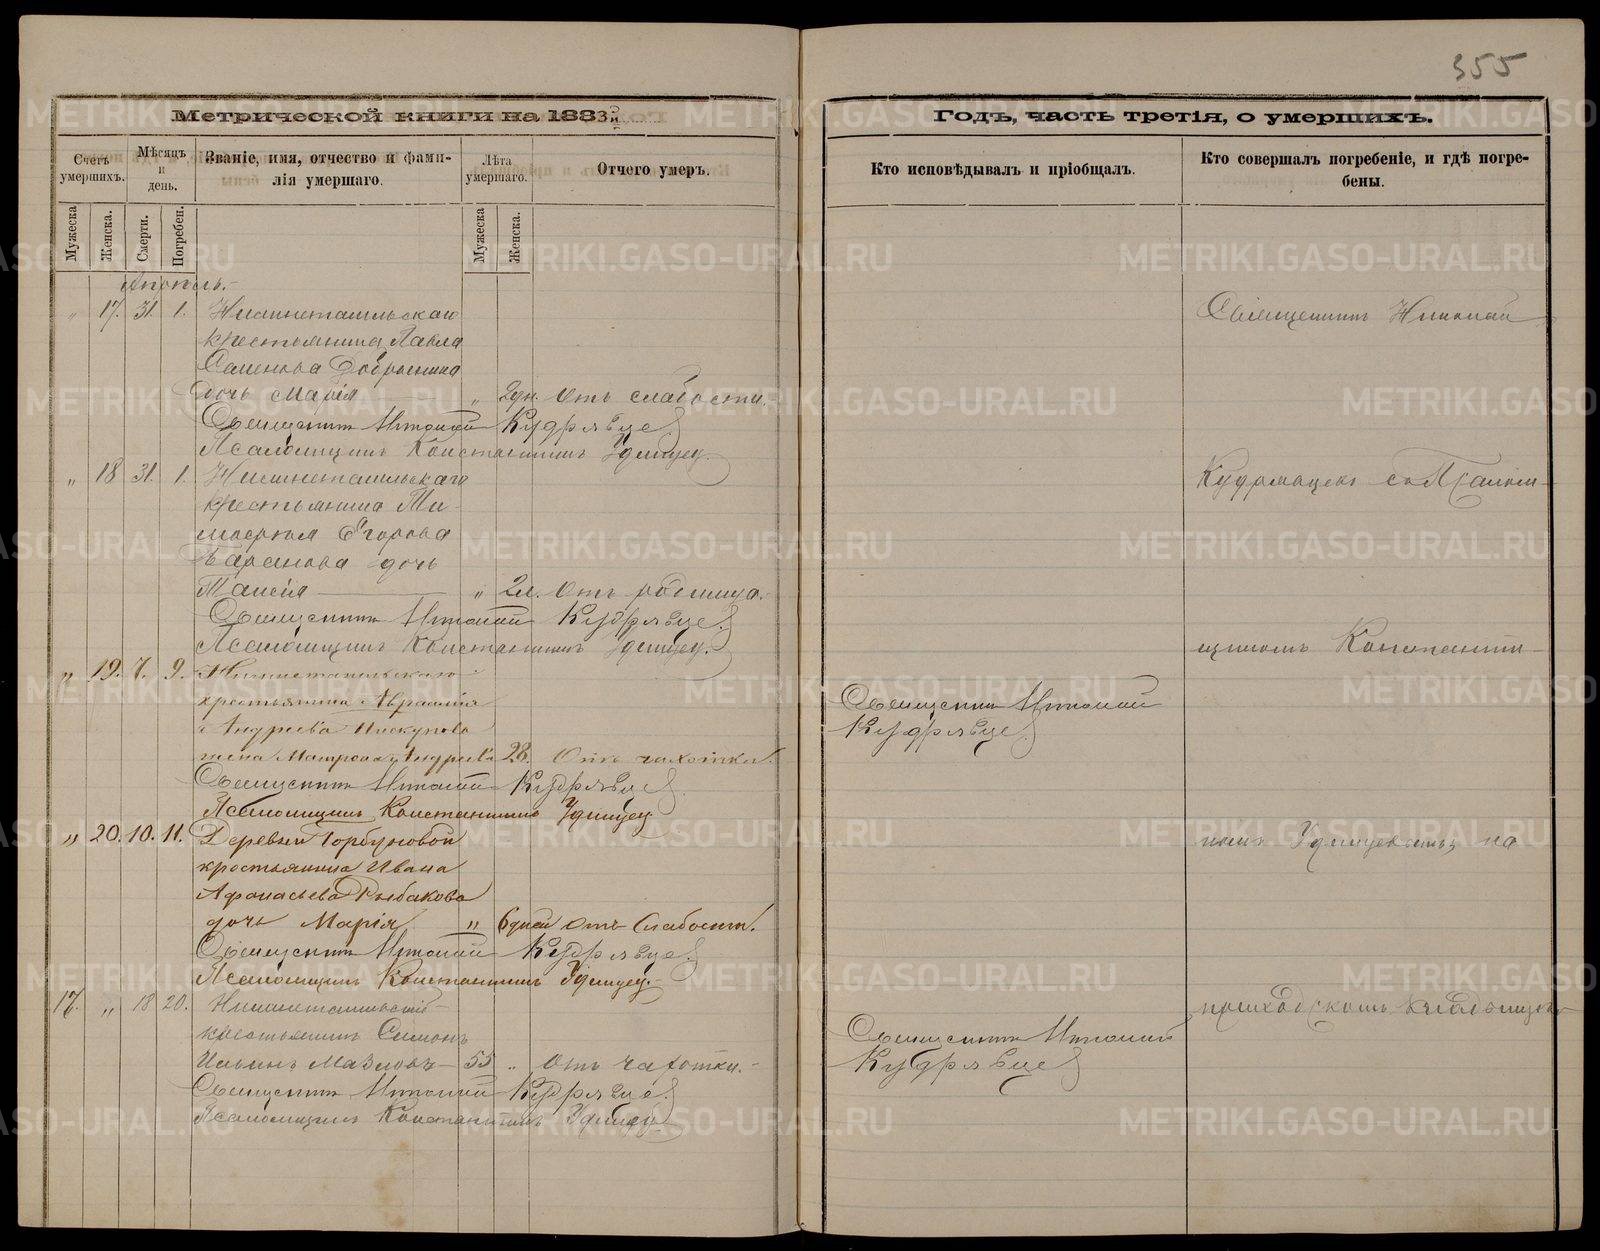 355
Метрической книги на 1883й
Годъ, часть третія, о умершихъ.
Счетъ умершихъ.
Мѣсяцъ и день.
Званіе, имя, отчество и фами-
лія умершаго.
Лѣта умершаго.
Отчего умеръ.
Кто исповѣдывалъ и пріобщалъ.
Кто совершалъ погребеніе, и гдѣ погре-
бены.
Мужеска
Женска.
Смерти.
Погребен.
Мужеска
Женска.
Апрѣль.
„ 17. 31. 1. Нижнетагильскаго
крестьянина Павла
Семенова
дочь Марія „ 2 дн. Отъ слабости.
Священникъ Кудрявцев
Псаломщикъ Константинъ Удинцев.
„ 18 31. 1. Нижнетагильскаго
крестьянина Ти-
моѳея Егорова
Баранова дочь
Таисія „ 2 н. Отъ родимца.
Священникъ Кудрявцев
Псаломщикъ Константинъ Удинцев.
„ 19. 7. 9. Нижнетагильскаго
крестьянина
Андреева Пискунова
жена Матрона Андреева 28. Отъ чахотки.
Священникъ Кудрявцев
Псаломщикъ Константинъ Удинцев
„ 20. 10. 11. Деревни Горбуновой
крестьянина Ивана
Афонасьева Рыбакова
дочь Марія „ 6 дней Отъ Слабости.
Священникъ Кудрявцев
Псаломщикъ Константинъ Удинцев.
17. „ 18 20. Нижнетагильскій
крестьянинъ Симонъ
Ильинъ 55 „ Отъ чахотки.
Священникъ Кудрявцев
Псаломщикъ Константинъ Удинцев
Священникъ
Кудрявцев
Священникъ
Кудрявцев
Священникъ
Кудрявцевъ съ Псалом-
щикомъ Константи-
номъ Удинцевымъ, на
приходскомъ кладбищѣ
METRIKI.GASO-URAL.RU